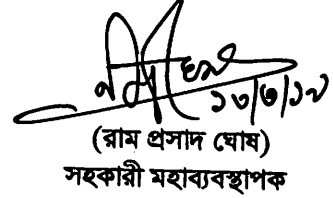 ১৩/৩/১৯
(রাম প্রসাদ ঘোষ)
সহকারী মহাব্যবস্থাপক